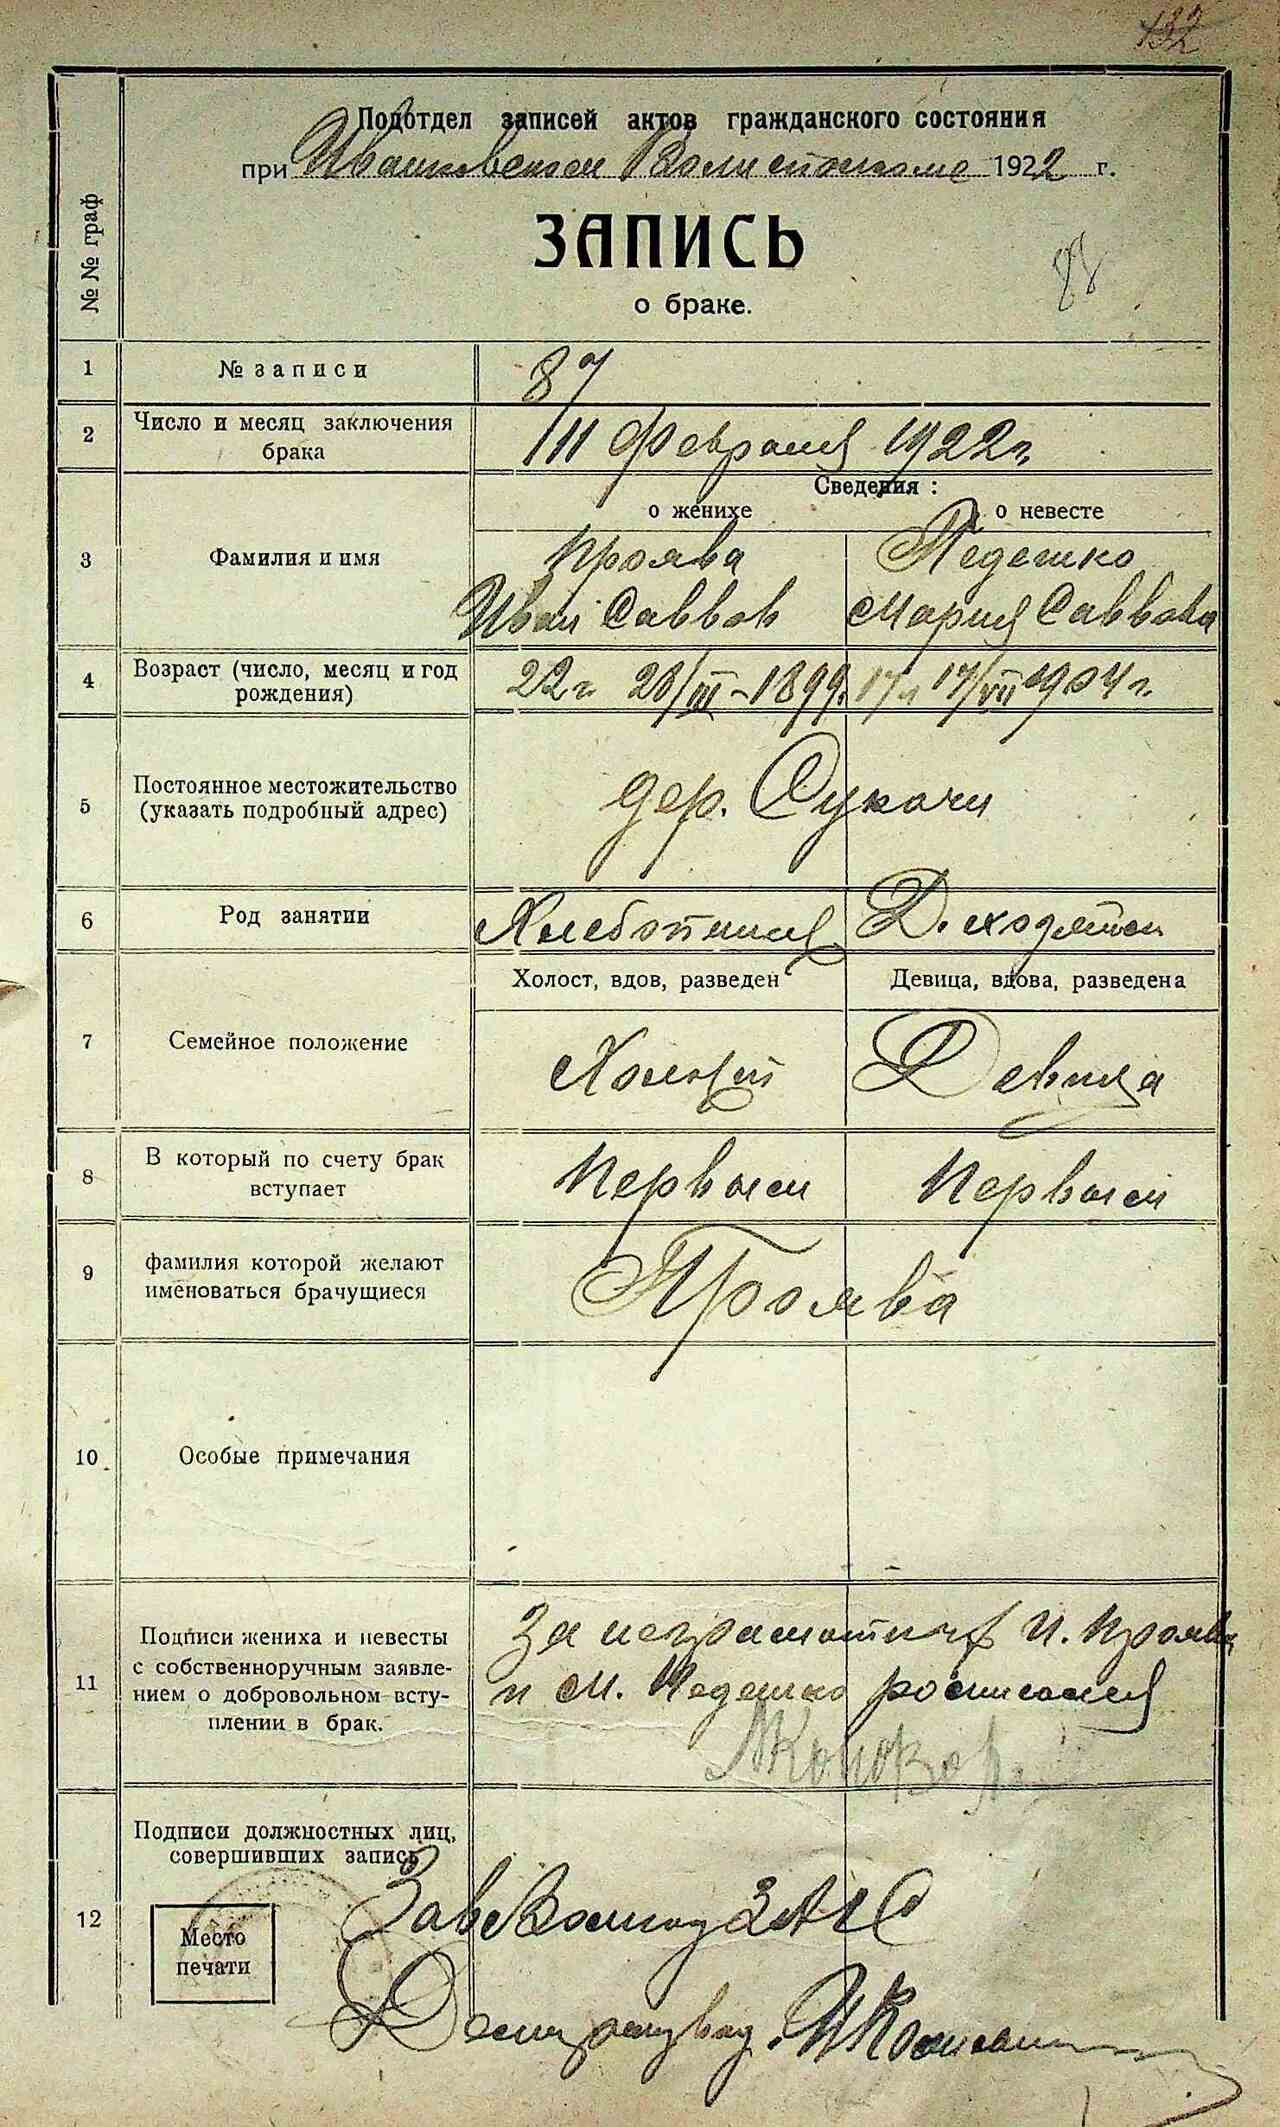 132
Подотдел записей актов гражданского состояния
при Иванковском Волисполкоме 1922 г.
№ № граф
ЗАПИСЬ
о браке.
88
1 № записи 87
2 Число и месяц заключения брака 11 Февраля 1922 г.
Сведения:
о женихе о невесте
3 Фамилия и имя Проява Педешко
Иван Саввов Мария Саввова
4 Возраст (число, месяц и год рождения) 22 г. 28/III-1899. 17 л 17/VII 1904 г.
5 Постоянное местожительство (указать подробный адрес) дер. Сукачи
6 Род занятии Хлебопашец Д. хозяйка
Холост, вдов, разведен Девица, вдова, разведена
7 Семейное положение Холост Девица
8 В который по счету брак вступает Первый Первый
9 фамилия которой желают именоваться брачущиеся Проява
10 Особые примечания
11 Подписи жениха и невесты с собственноручным заявлением о добровольном вступлении в брак.
За неграмотных И. Проява
и М. Педешко росписался
12 Подписи должностных лиц, совершивших запись
Зав
ЗАГС
Место
печати